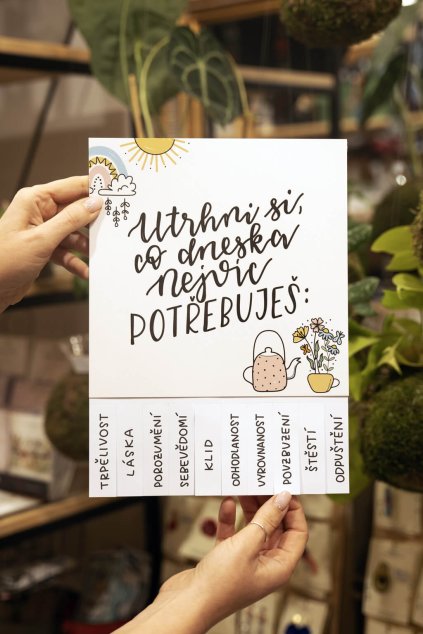 Utrhni si,
co dneska
nejvíc
POTŘEBUJEŠ:
TRPĚLIVOST
LÁSKA
POROZUMĚNÍ
SEBEVĚDOMÍ
KLID
ODHODLANOST
VYROVNANOST
POVZBUZENÍ
ŠTĚSTÍ
ODPUŠTĚNÍ